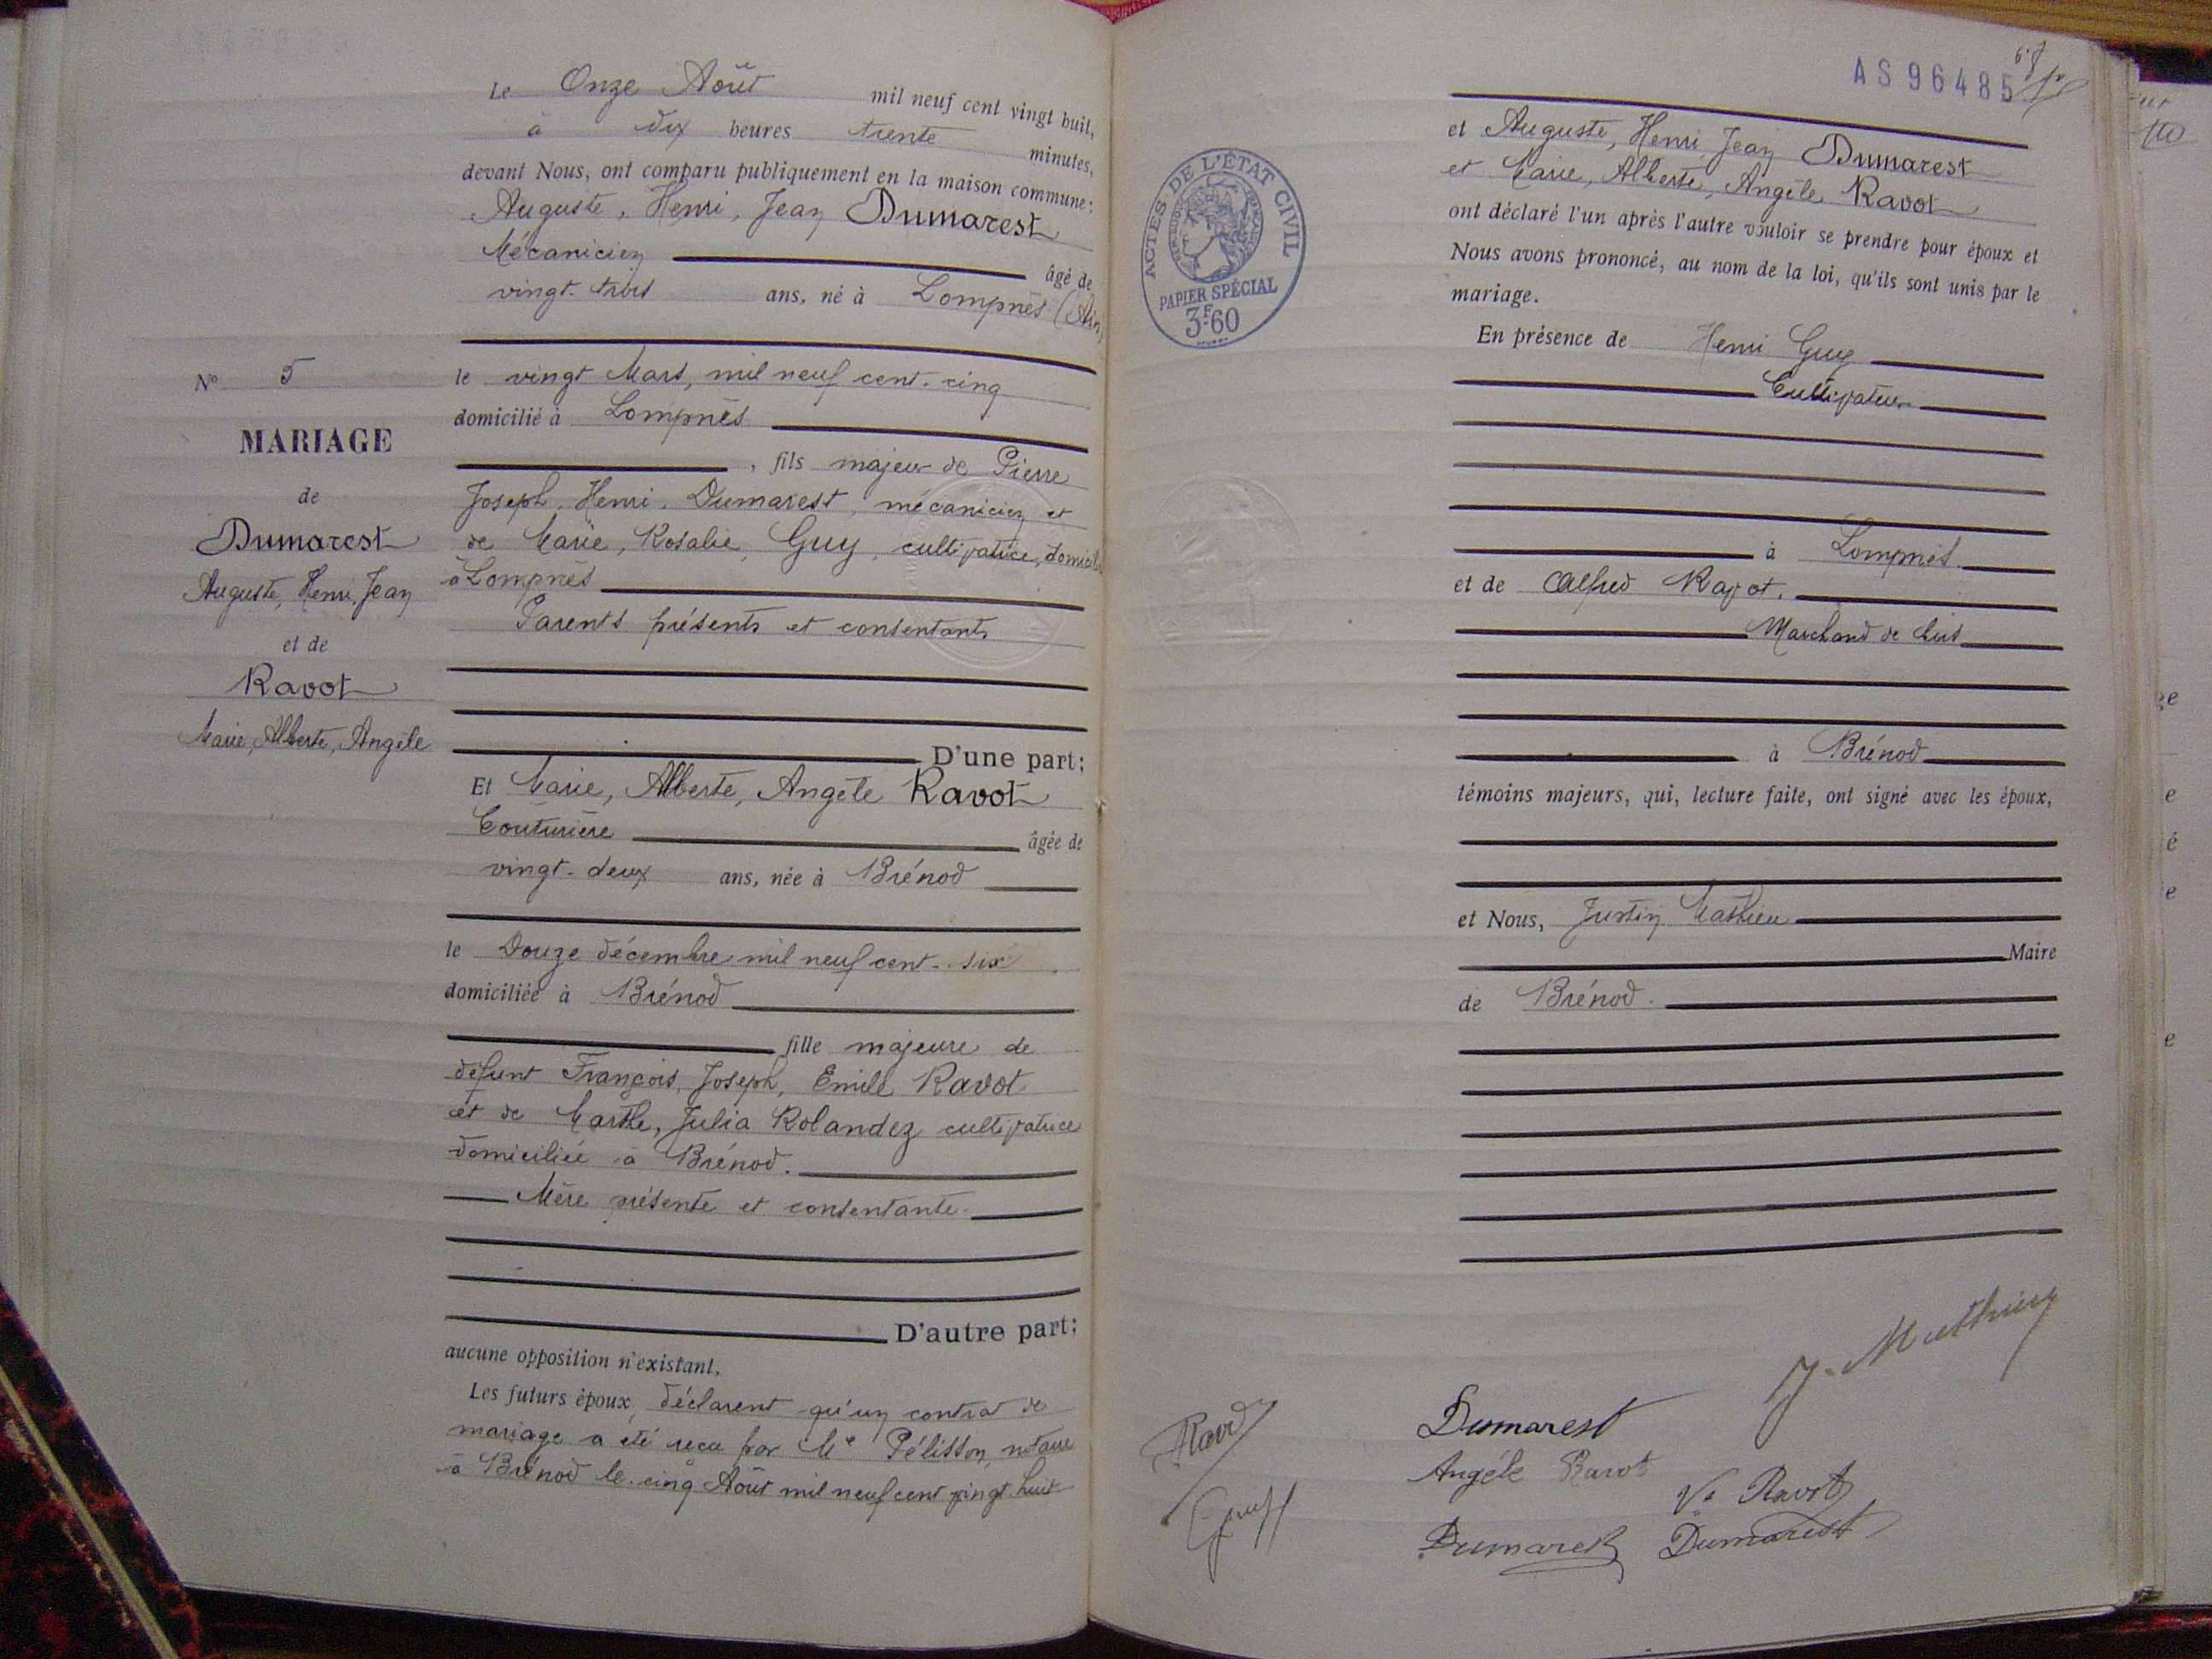 Le Onze Août mil neuf cent vingt huit,
à dix heures trente minutes,
devant Nous, ont comparu publiquement en la maison commune:
Auguste, Henri, Jean Dumarest
Mécanicien âgé de
vingt-trois ans, né à Lompnès (Ain)
le vingt Mars, mil neuf cent-cinq
domicilié à Lompnès
, fils majeur de Pierre
Joseph, Henri, Dumarest, mécanicien et
de Marie, Rosalie Guy, cultivatrice, domiciliés
à Lompnès
Parents présents et consentants
D'une part;
Et Marie, Alberte, Angèle Ravot
Couturière âgée de
vingt-deux ans, née à Brénod
le Douze décembre mil neuf cent-six
domiciliée à Brénod
fille majeure de
défunt François, Joseph, Emile Ravot
et de Marthe, Julia Rolandez cultivatrice
domiciliée à Brénod.
Mère présente et consentante.
D'autre part;
aucune opposition n'existant,
Les futurs époux, déclarent qu'un contrat de
mariage a été reçu par Me Pélisson, notaire
à Brénod le cinq Août mil neuf cent vingt huit
No 5
MARIAGE
de
Dumarest
Auguste, Henri, Jean
et de
Ravot
Marie, Alberte, Angèle
AS96485
ACTES DE L'ÉTAT CIVIL
PAPIER SPÉCIAL
3F60
et Auguste, Henri, Jean Dumarest
et Marie, Alberte, Angèle Ravot
ont déclaré l'un après l'autre vouloir se prendre pour époux et
Nous avons prononcé, au nom de la loi, qu'ils sont unis par le
mariage.
En présence de Henri Guy
Cultivateur
à Lompnès
et de Alfred Ravot,
Marchand de bois
à Brénod
témoins majeurs, qui, lecture faite, ont signé avec les époux,
et Nous, Justin Mathieu
Maire
de Brénod.
J. Mathieu
Dumarest
Ravot
Angéle Ravot
Ve Ravot
Guy
Dumarest Dumarest